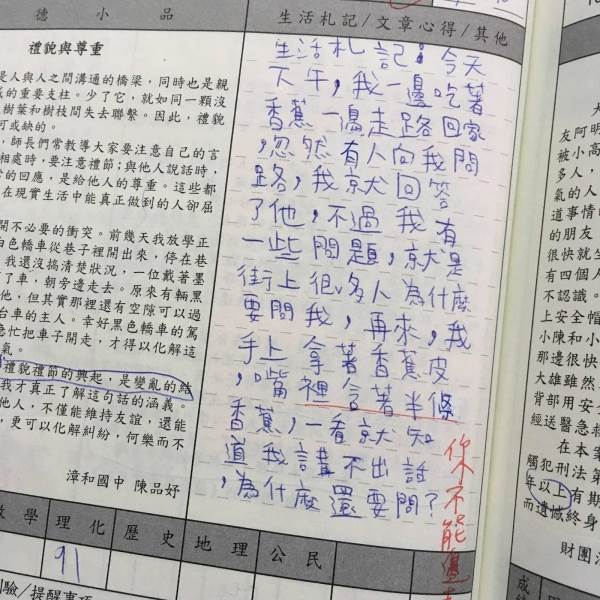 德小品
生活札記/文章心得/其他
禮貌與尊重
是人與人之間溝通的橋梁，同時也是親
的重要支柱。少了它，就如同一顆沒
樹葉和樹枝間失去聯繫。因此，禮貌
可或缺的。
，師長們常教導大家要注意自己的言
相處時，要注意禮節；與他人說話時，
的回應，是給他人的尊重。這些都
在現實生活中能真正做到的人卻屈
開不必要的衝突。前幾天我放學正
白色轎車從巷子裡開出來，停在巷
我還沒搞清楚狀況，一位戴著墨
了車，朝旁邊走去。原來有輛黑
他，但其實那裡還有空隙可以過
台車的主人。幸好黑色轎車的駕
急忙把車子開走，才得以化解這
氣。
禮貌禮節的興起，是變亂的終
我才真正了解這句話的涵義。
他人，不僅能維持友誼，還能
，更可以化解糾紛，何樂而不
漳和國中 陳品妤
生活札記：今天
下午，我一邊吃著
香蕉一邊走路回家
，忽然有人向我問
路，我就回答
了他，不過我有
一些問題，就是
街上很多人為什麼
要問我，再來，我
手上拿著香蕉皮
，嘴裡含著半條
香蕉，一看就知
道我講不出話
，為什麼還要問？
你不能邊
數學
理化
歷史
地理
公民
91
測驗/提醒事項
大
友阿明
被小高
多人，
氣的人
道事情
的朋友
很快就
有四個人
不認識。
上安全帽
小陳和小
那邊很快
大雄雖然
背部用安
經送醫急救
在本案
觸犯刑法第
年以上有期
而遺憾終身
財團法
成